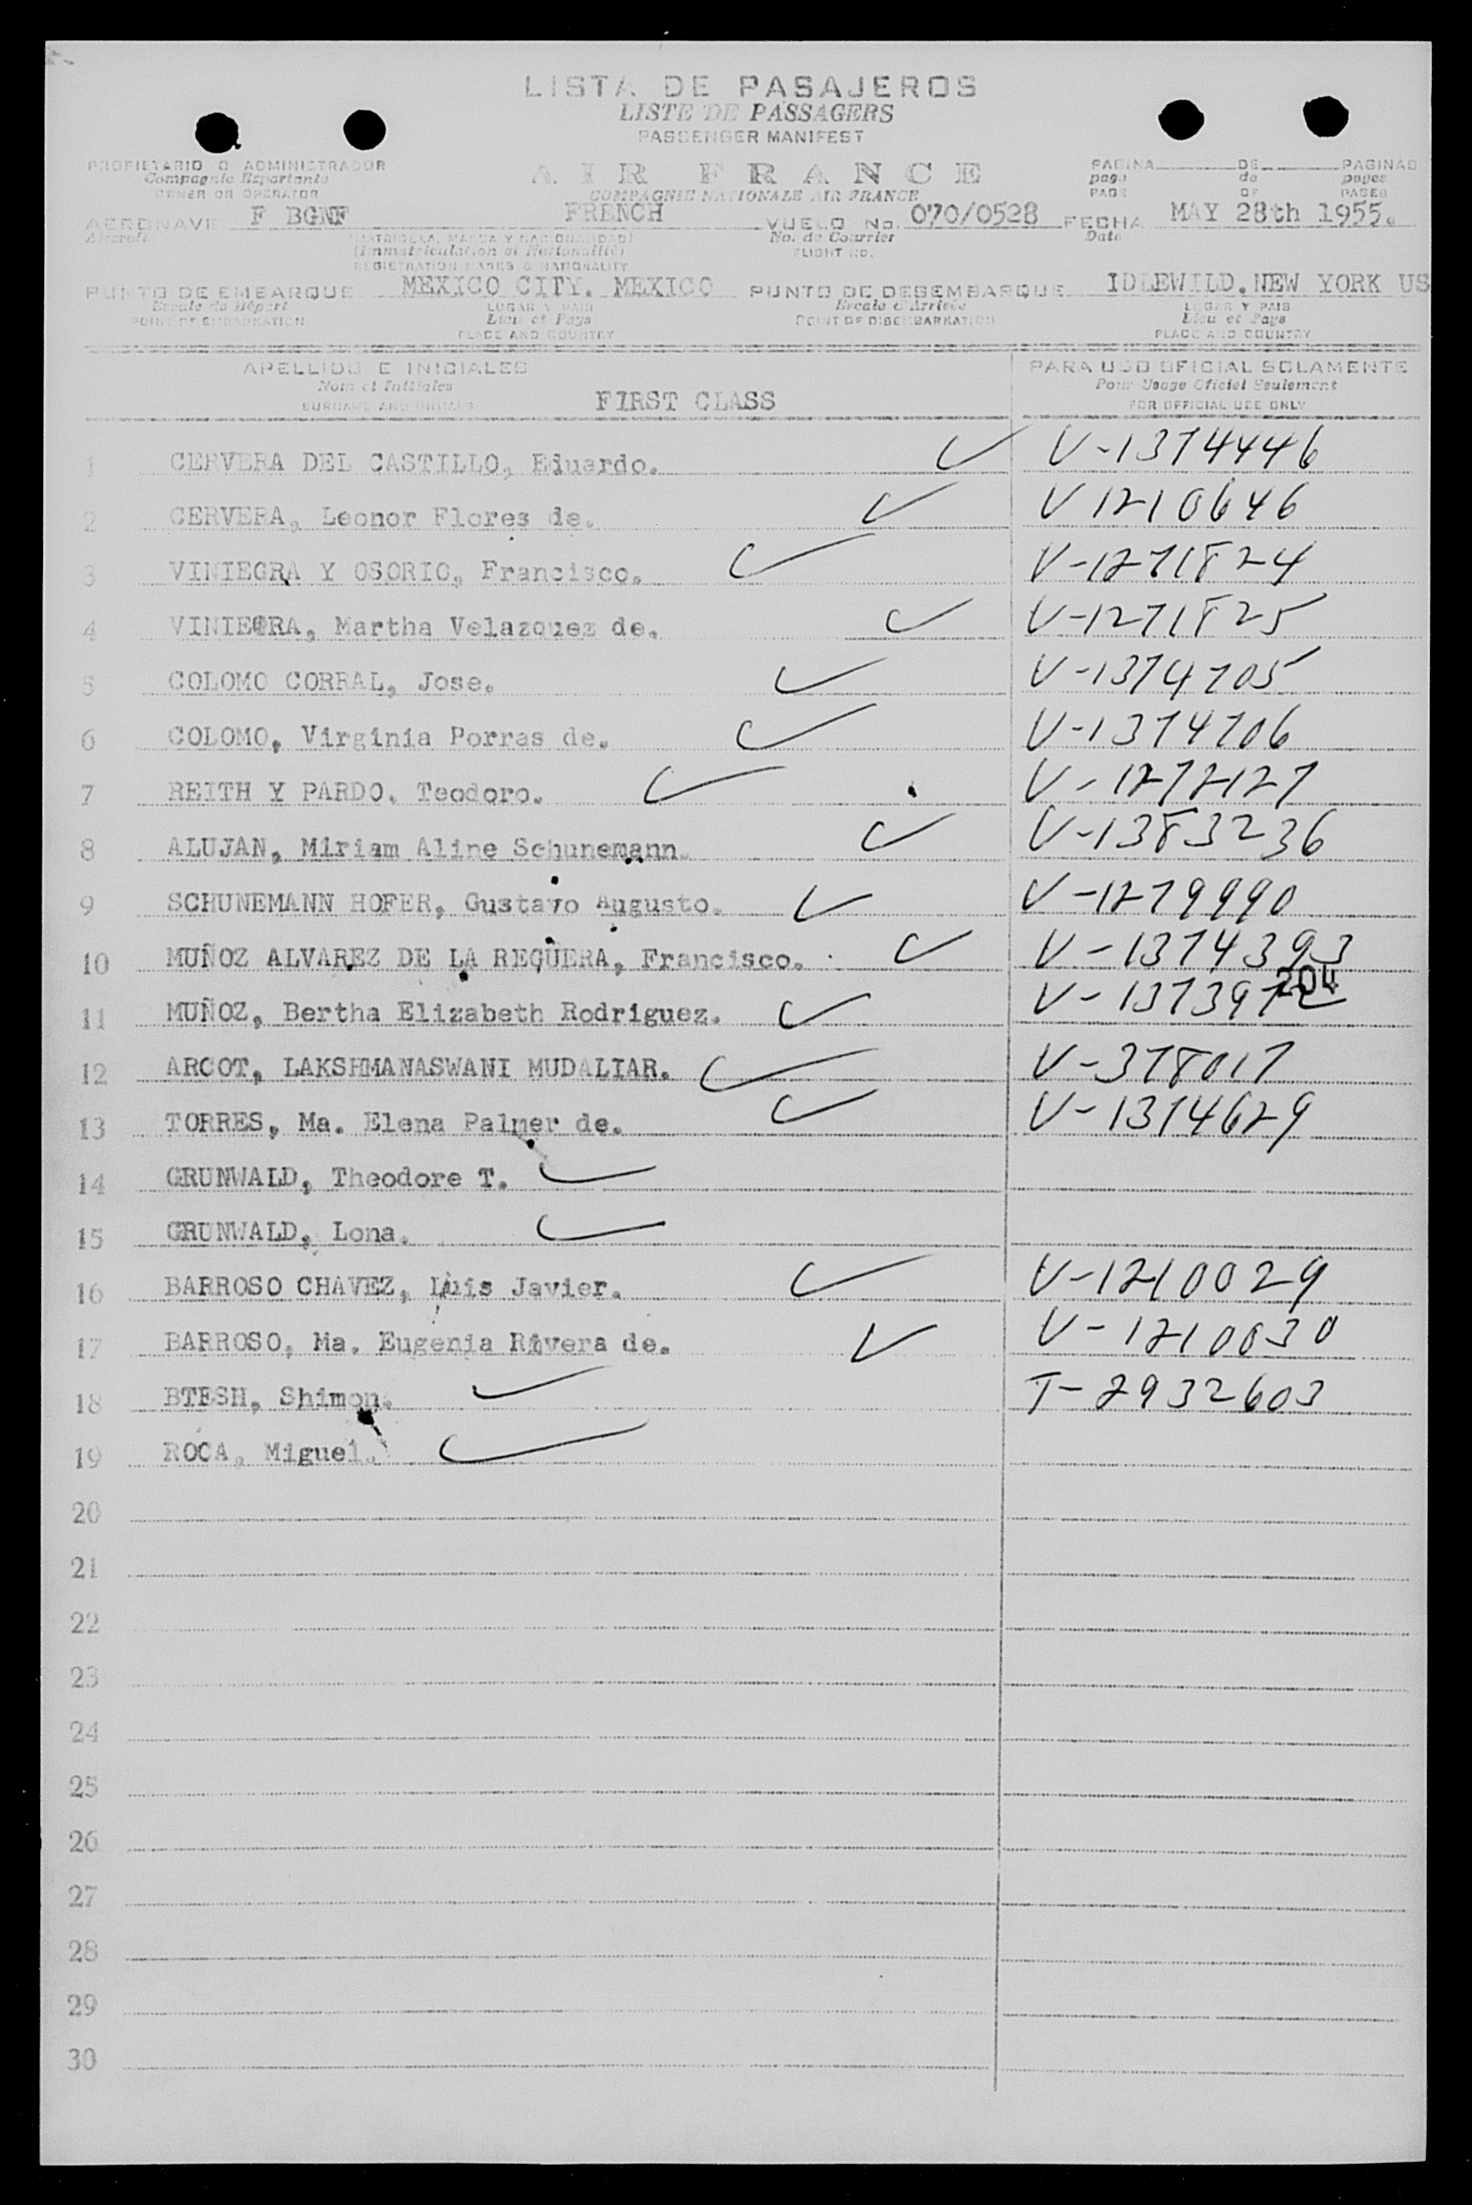 LISTA DE PASAJEROS
LISTE DE PASSAGERS
PASSENGER MANIFEST
PROPIETARIO O ADMINISTRADOR
Compagnie Exportante
OWNER OR OPERATOR
AIR FRANCE
COMPAGNIE NATIONALE AIR FRANCE
PAGINA DE PAGINAS
page de pages
PAGE OF PAGES
AERONAVE F BGNF FRENCH VUELO No. 070/0528 FECHA MAY 28th 1955.
Aircraft (MATRICULA, MARCA Y NACIONALIDAD) No. de Courrier Date
(Immatriculation et Nationalité) FLIGHT NO.
REGISTRATION MARKS & NATIONALITY
PUNTO DE EMBARQUE MEXICO CITY. MEXICO PUNTO DE DESEMBARQUE IDLEWILD.NEW YORK US
Escale de Départ LUGAR Y PAIS Escale d'Arrivée LUGAR Y PAIS
POINT OF EMBARKATION Lieu et Pays POINT OF DISEMBARKATION Lieu et Pays
PLACE AND COUNTRY PLACE AND COUNTRY
APELLIDO E INICIALES PARA USO OFICIAL SOLAMENTE
Nom et Initiales Pour Usage Oficiel Seulement
SURNAME AND INITIALS FIRST CLASS FOR OFFICIAL USE ONLY
1 CERVERA DEL CASTILLO, Eduardo. V-1374446
2 CERVERA, Leonor Flores de. V 1210646
3 VINIEGRA Y OSORIO, Francisco. V-1271824
4 VINIEGRA, Martha Velazquez de. V-1271825
5 COLOMO CORRAL, Jose. V-1374705
6 COLOMO, Virginia Porras de. V-1374706
7 REITH Y PARDO. Teodoro. V-1272127
8 ALUJAN, Miriam Aline Schunemann. V-1383236
9 SCHUNEMANN HOFER, Gustavo Augusto. V-1279990
10 MUÑOZ ALVAREZ DE LA REGUERA, Francisco. V-1374393
204
11 MUÑOZ, Bertha Elizabeth Rodriguez. V-1373972
12 ARCOT, LAKSHMANASWANI MUDALIAR. V-378017
13 TORRES, Ma. Elena Palmer de. V-1374629
14 GRUNWALD, Theodore T.
15 GRUNWALD, Lona.
16 BARROSO CHAVEZ, Luis Javier. V-1210029
17 BARROSO, Ma. Eugenia Rivera de. V-1210030
18 BTESH, Shimon. T-2932603
19 ROCA, Miguel.
20
21
22
23
24
25
26
27
28
29
30